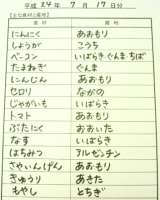 平成 24年 7月 17日分
【主な食材と産地】
食材 産地
にんにく あおもり
しょうが こうち
ベーコン いばらき・ぐんま・ちば
たまねぎ ぐんま
にんじん あおもり
セロリ ながの
じゃがいも いばらき
トマト あおもり
ぶたにく おおいた
なす いばらき
はちみつ アルゼンチン
さやいんげん あおもり
きゅうり あきた
もやし とちぎ